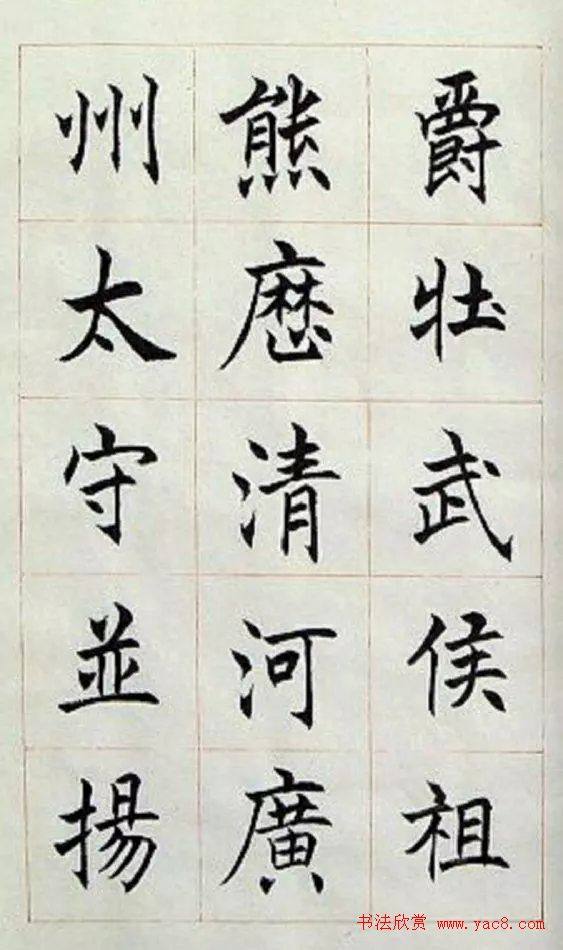 爵壮武侯祖
熊歷清河廣
州太守並揚
书法欣赏 www.yac8.com